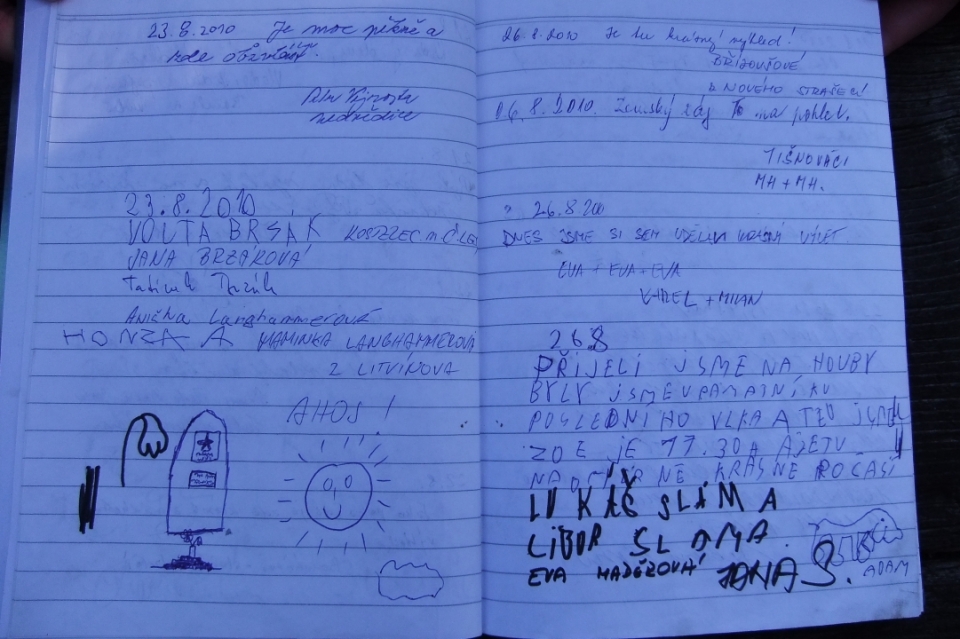 23.8.2010 Je moc pěkně a
zde
23.8.2010
VOJTA BRSÁK KOSTELEC n. Č. LESY
JANA BRZÁKOVÁ
Tatínek Brzák
Anička Langhammerová
HONZA A MAMINKA LANGHAMMEROVÁ
Z LITVÍNOVA
AHOJ!
26.8.2010 Je tu krásný výhled!
BŘÍZOVŠOVÉ
Z NOVÉHO STRAŠECÍ
26.8.2010. Zemský ráj to na pohled.
TIŠNOVÁCI
MH + MH.
26.8 200
DNES JSME SI SEM UDĚLALI KRÁSNÝ VÝLET
EVA + EVA + EVA
KAREL + MILAN
26 8
PŘIJELI JSME NA HOUBY
BYLY JSME U PAMATNÍKU
POSLEDNIHO VLKA A TEĎ JSME
ZDE JE 17.30 A JE TU
NADHERNE KRASNE POČASÍ
LUKÁŠ SLÁMA
LIBOR SLAMA
EVA JANA S.
ADAM